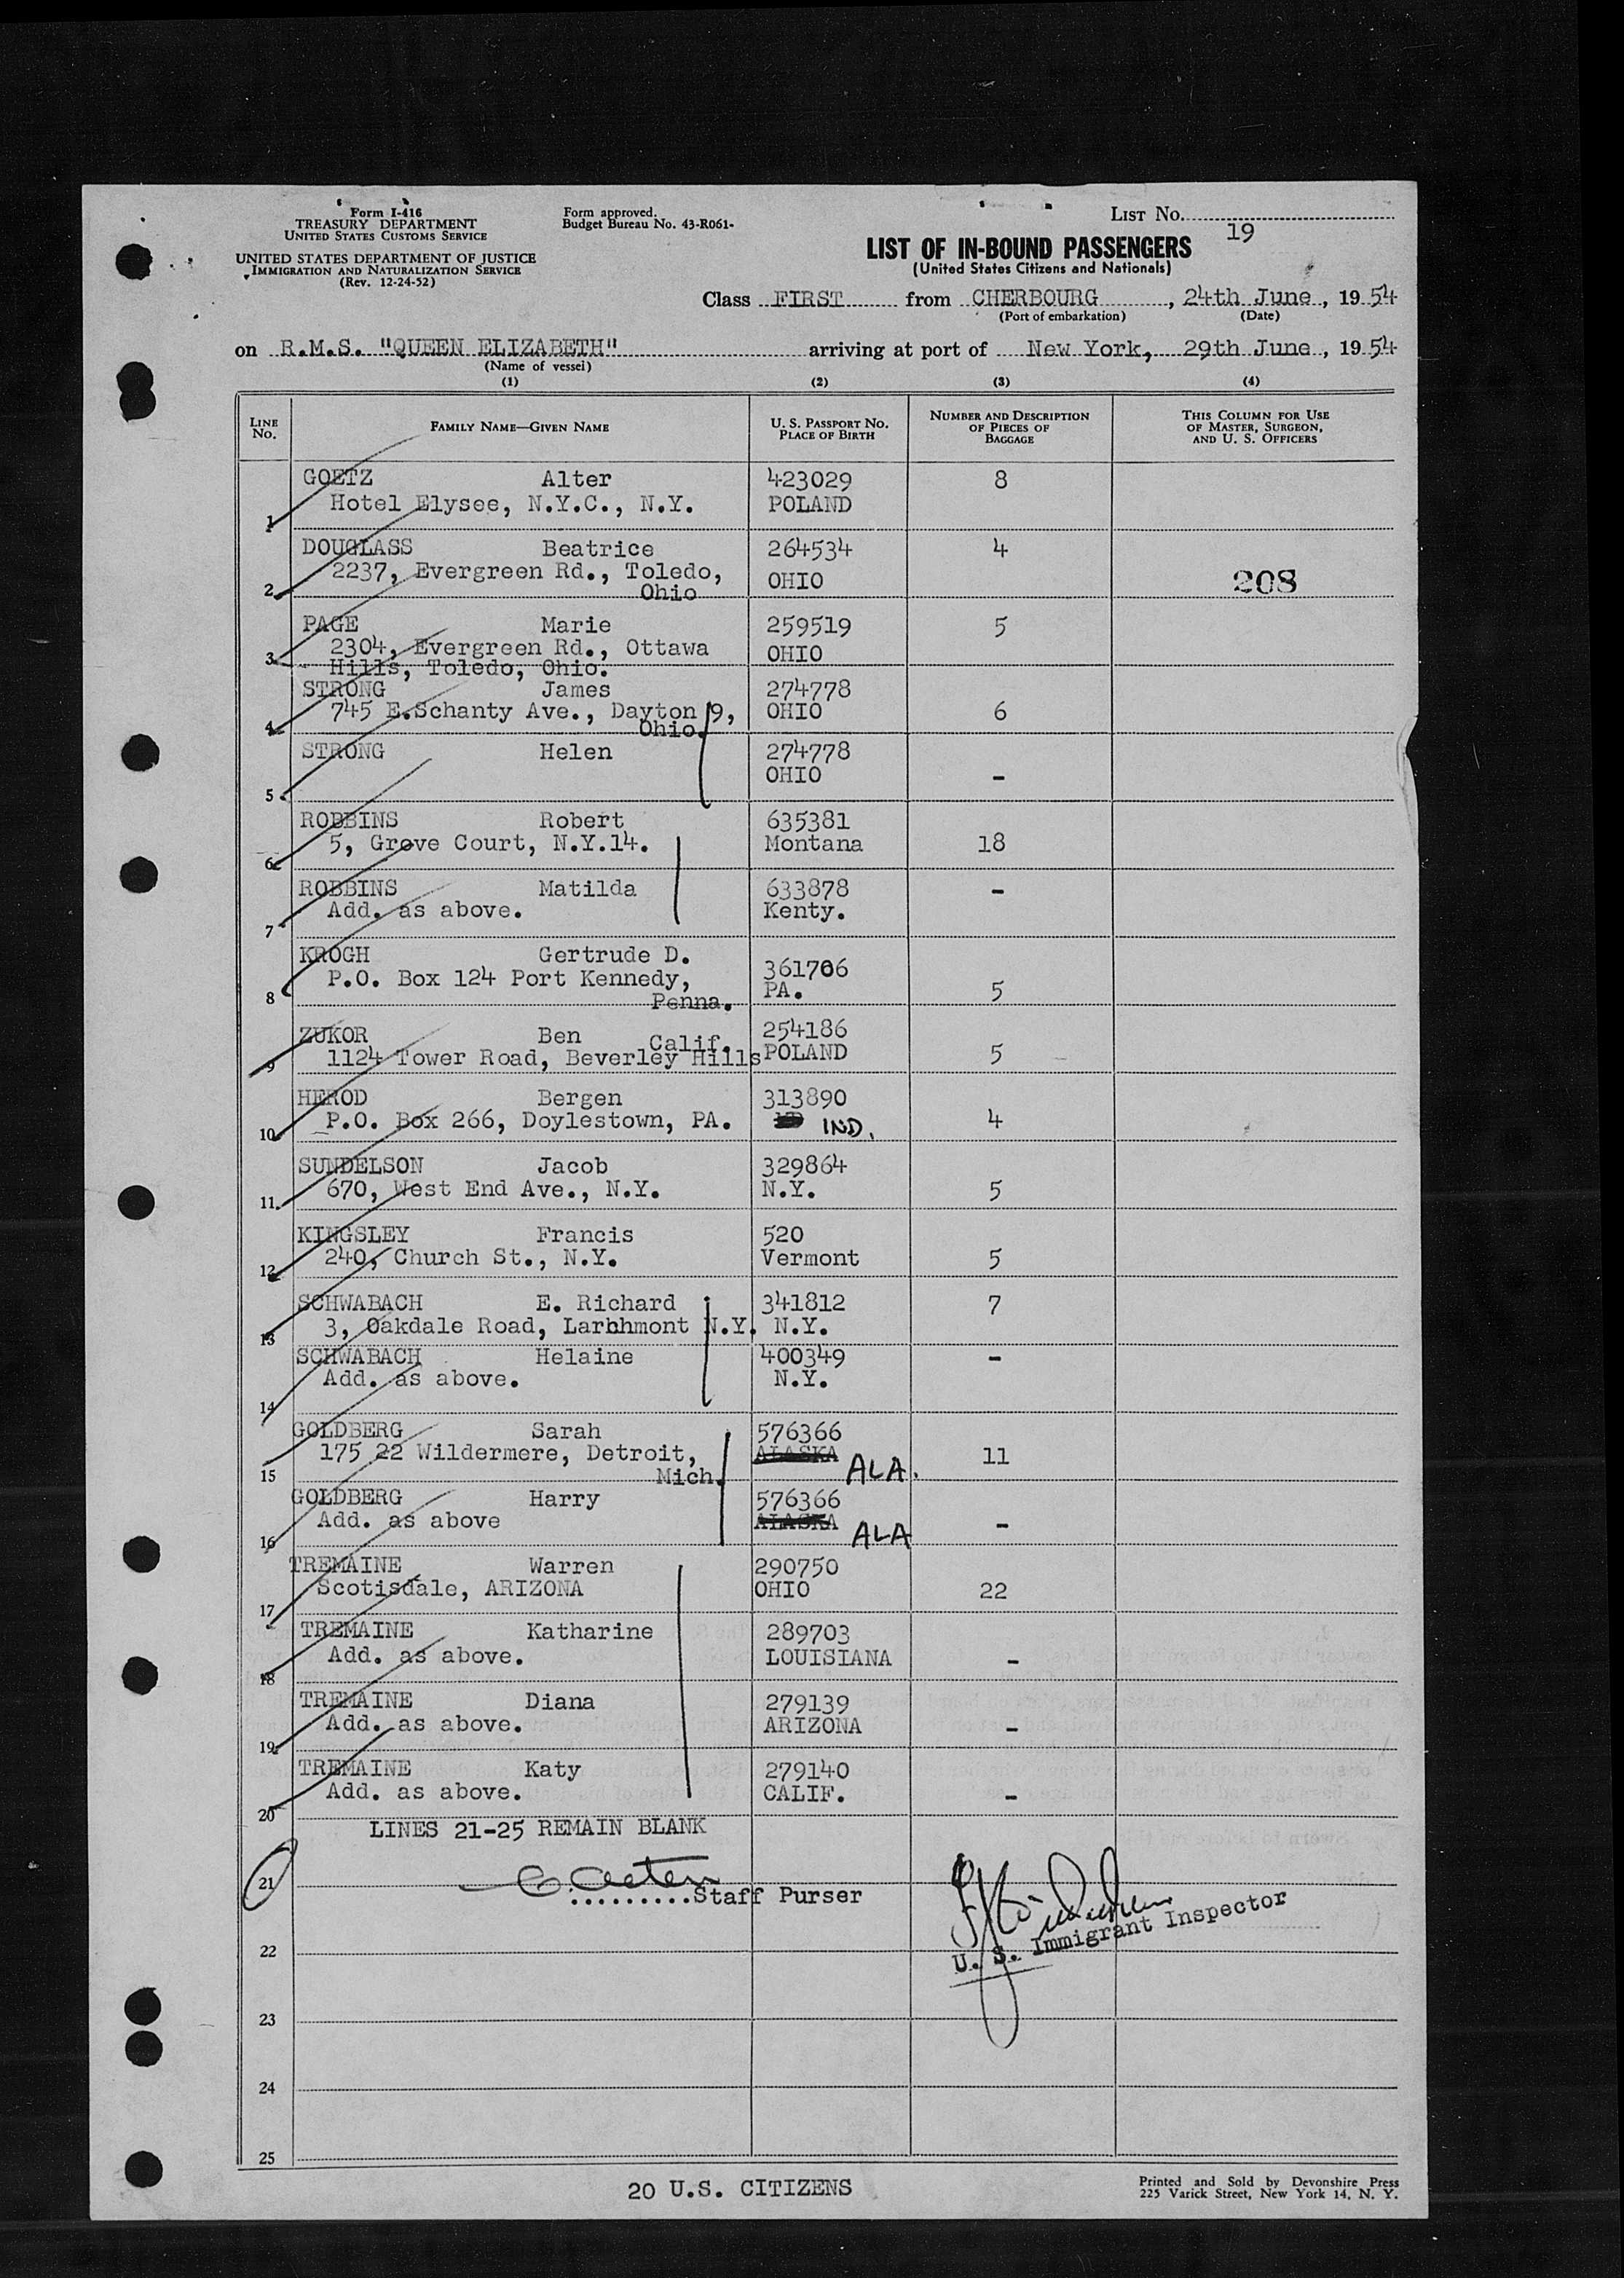 Form I-416
TREASURY DEPARTMENT
UNITED STATES CUSTOMS SERVICE
UNITED STATES DEPARTMENT OF JUSTICE
IMMIGRATION AND NATURALIZATION SERVICE
(Rev. 12-24-52)
Form approved.
Budget Bureau No. 43-R061-
LIST No.
19
LIST OF IN-BOUND PASSENGERS
(United States Citizens and Nationals)
Class FIRST from CHERBOURG, 24th June, 1954
(Port of embarkation) (Date)
on R.M.S. "QUEEN ELIZABETH" arriving at port of New York, 29th June, 1954
(Name of vessel)
(1) (2) (3) (4)
LINE No. FAMILY NAME—GIVEN NAME U. S. PASSPORT NO. PLACE OF BIRTH NUMBER AND DESCRIPTION OF PIECES OF BAGGAGE THIS COLUMN FOR USE OF MASTER, SURGEON, AND U. S. OFFICERS
GOETZ Alter 423029 8
1 Hotel Elysee, N.Y.C., N.Y. POLAND
DOUGLASS Beatrice 264534 4
2237, Evergreen Rd., Toledo, OHIO 208
2 Ohio
PAGE Marie 259519 5
2304, Evergreen Rd., Ottawa OHIO
3 Hills, Toledo, Ohio.
STRONG James 274778
745 E.Schanty Ave., Dayton 9, OHIO 6
4 Ohio.
STRONG Helen 274778
5 OHIO -
ROBBINS Robert 635381
6 5, Grove Court, N.Y.14. Montana 18
ROBBINS Matilda 633878 -
7 Add. as above. Kenty.
KROGH Gertrude D. 361706
P.O. Box 124 Port Kennedy, PA. 5
8 Penna.
ZUKOR Ben Calif. 254186
9 1124 Tower Road, Beverley Hills POLAND 5
HEROD Bergen 313890
10 P.O. Box 266, Doylestown, PA. IND. 4
SUNDELSON Jacob 329864
11 670, West End Ave., N.Y. N.Y. 5
KINGSLEY Francis 520
12 240, Church St., N.Y. Vermont 5
SCHWABACH E. Richard 341812 7
13 3, Oakdale Road, Larchmont N.Y. N.Y.
SCHWABACH Helaine 400349 -
14 Add. as above. N.Y.
GOLDBERG Sarah 576366
175 22 Wildermere, Detroit, ALASKA ALA. 11
15 Mich.
GOLDBERG Harry 576366
16 Add. as above ALASKA ALA -
TREMAINE Warren 290750
17 Scotisdale, ARIZONA OHIO 22
TREMAINE Katharine 289703
18 Add. as above. LOUISIANA -
TREMAINE Diana 279139
19 Add. as above. ARIZONA -
TREMAINE Katy 279140
20 Add. as above. CALIF. -
LINES 21-25 REMAIN BLANK
21 .........Staff Purser
U. S. Immigrant Inspector
22
23
24
25
20 U.S. CITIZENS
Printed and Sold by Devonshire Press
225 Varick Street, New York 14, N. Y.